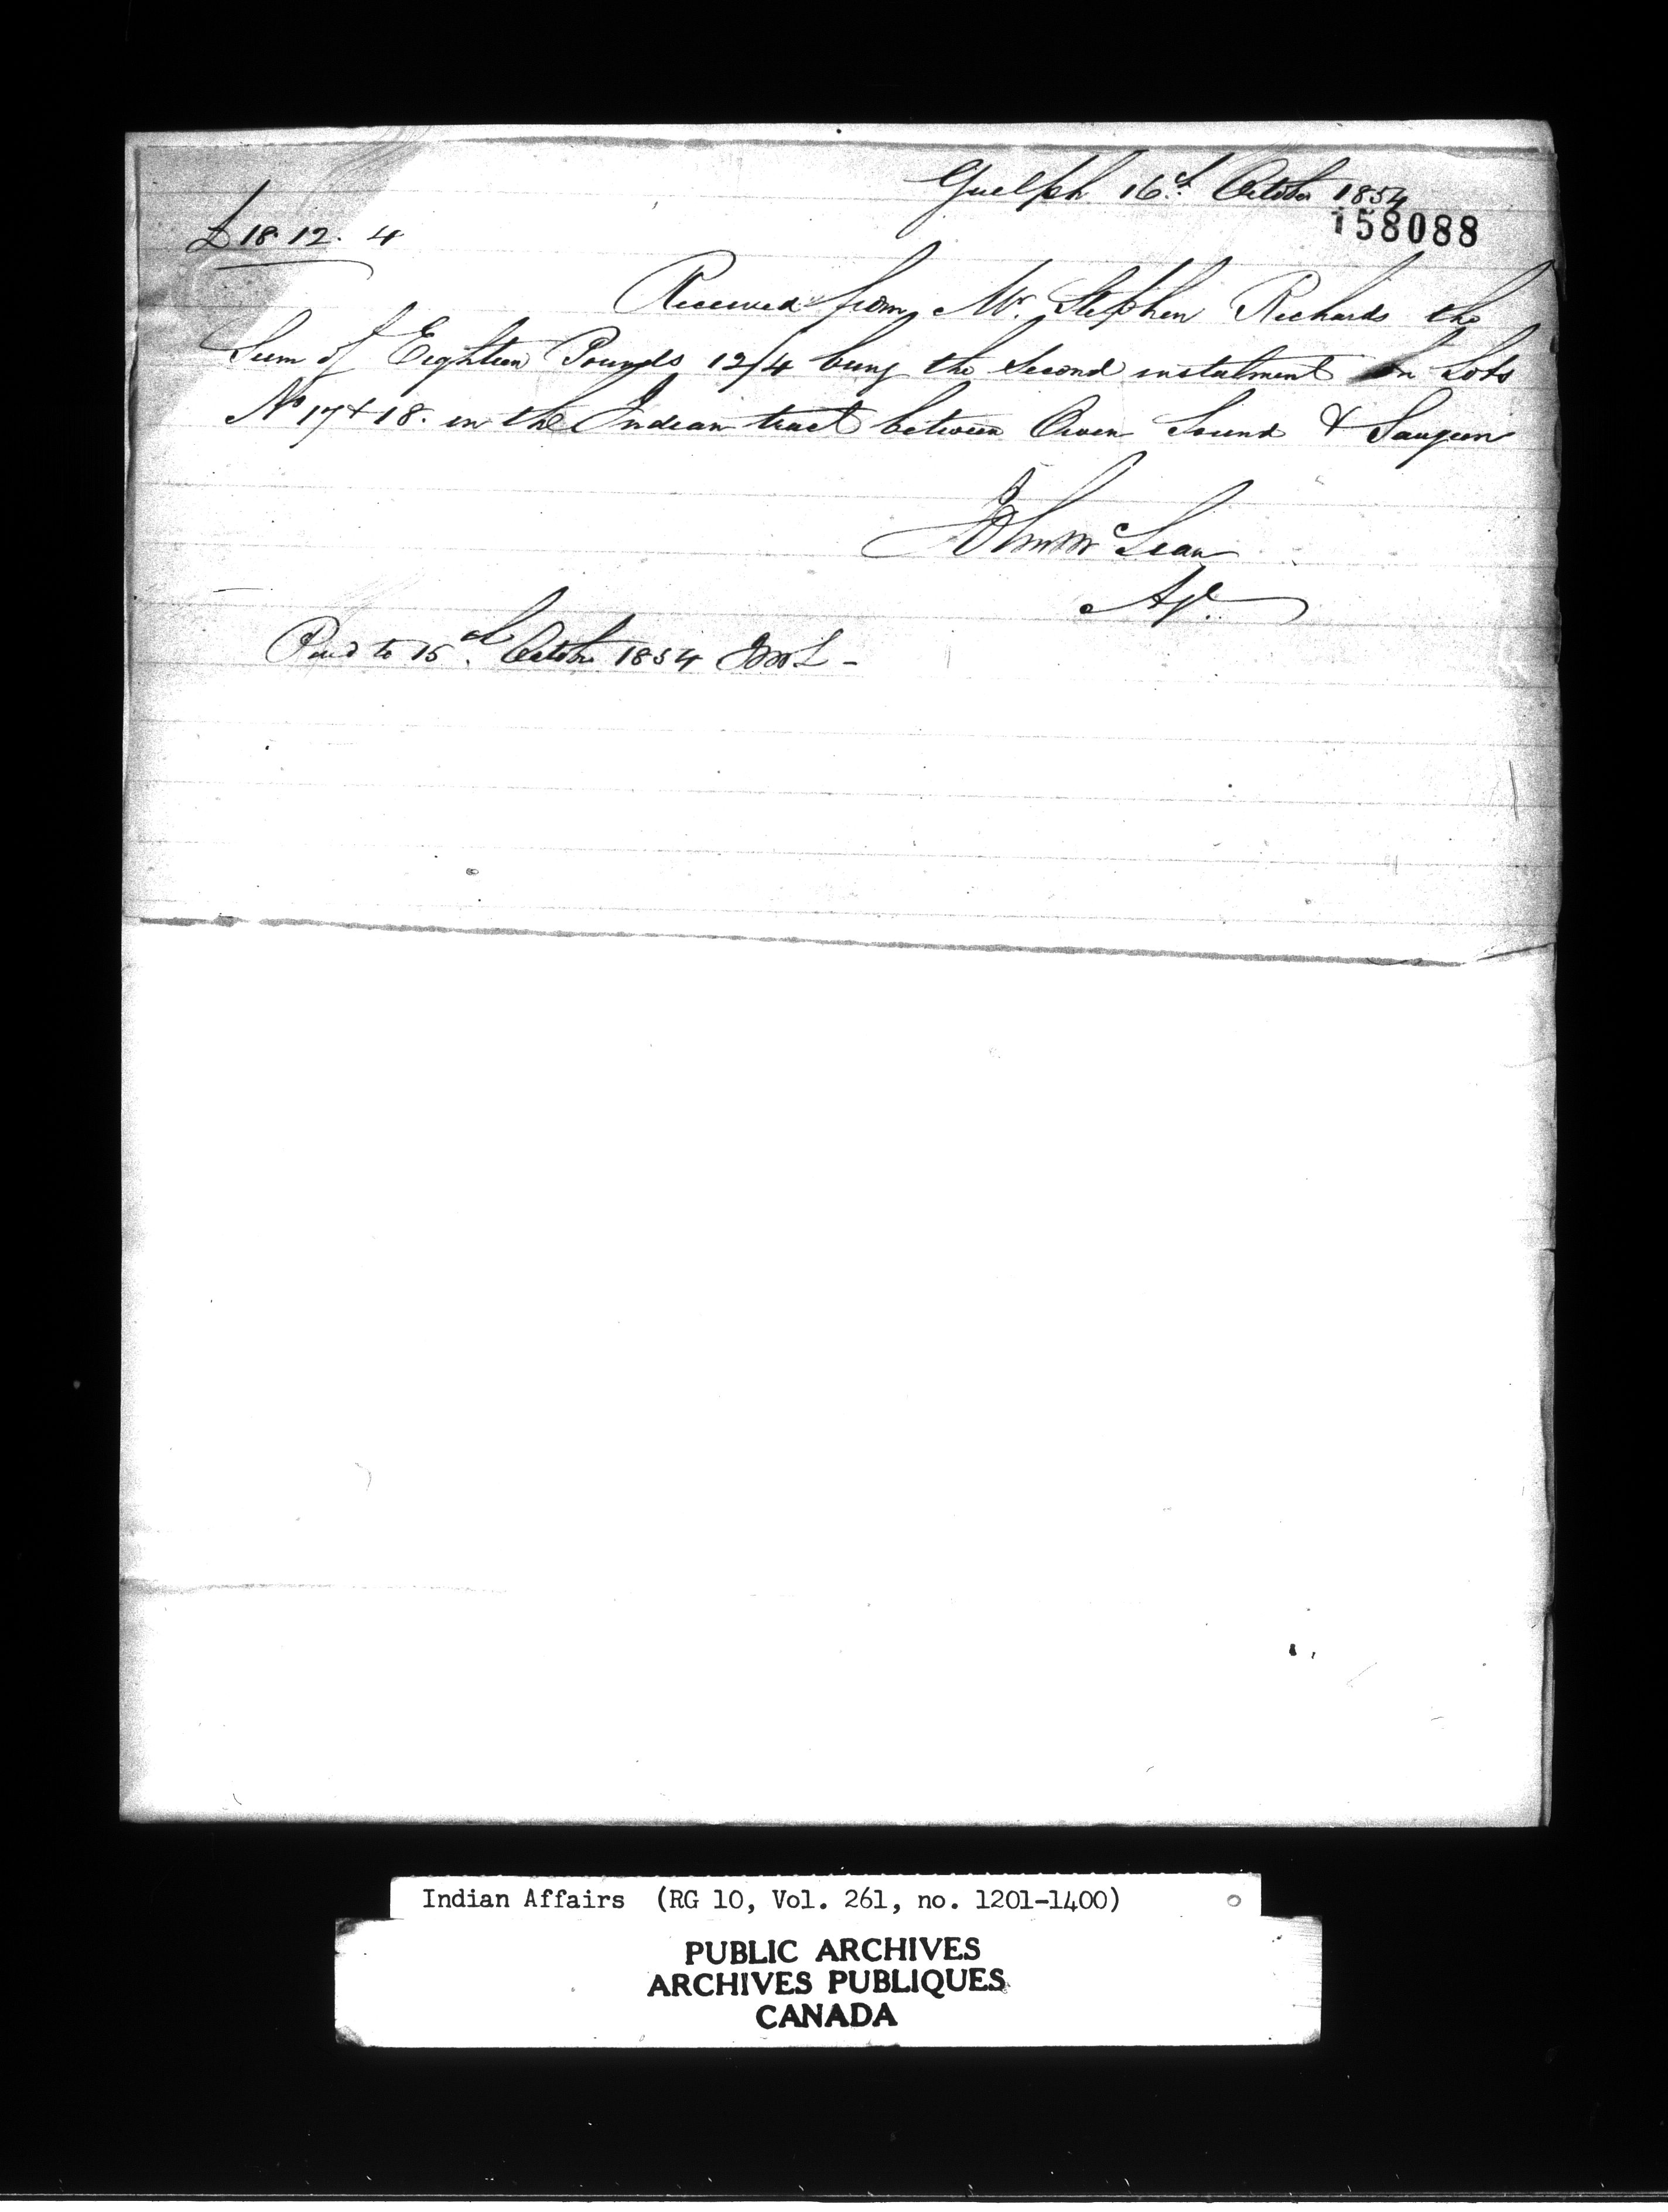 Guelph 16th October 1854
158088
£18. 12. 4
Received from Mr. Stephen Richards the
Sum of Eighteen Pounds 12/4 being the Second instalment on Lots
No 17 & 18. in the Indian tract between Owen Sound & Saugeen
John McLean
Agt.
Paid to 15th October 1854 JMcL -
Indian Affairs (RG 10, Vol. 261, no. 1201-1400)
PUBLIC ARCHIVES
ARCHIVES PUBLIQUES
CANADA